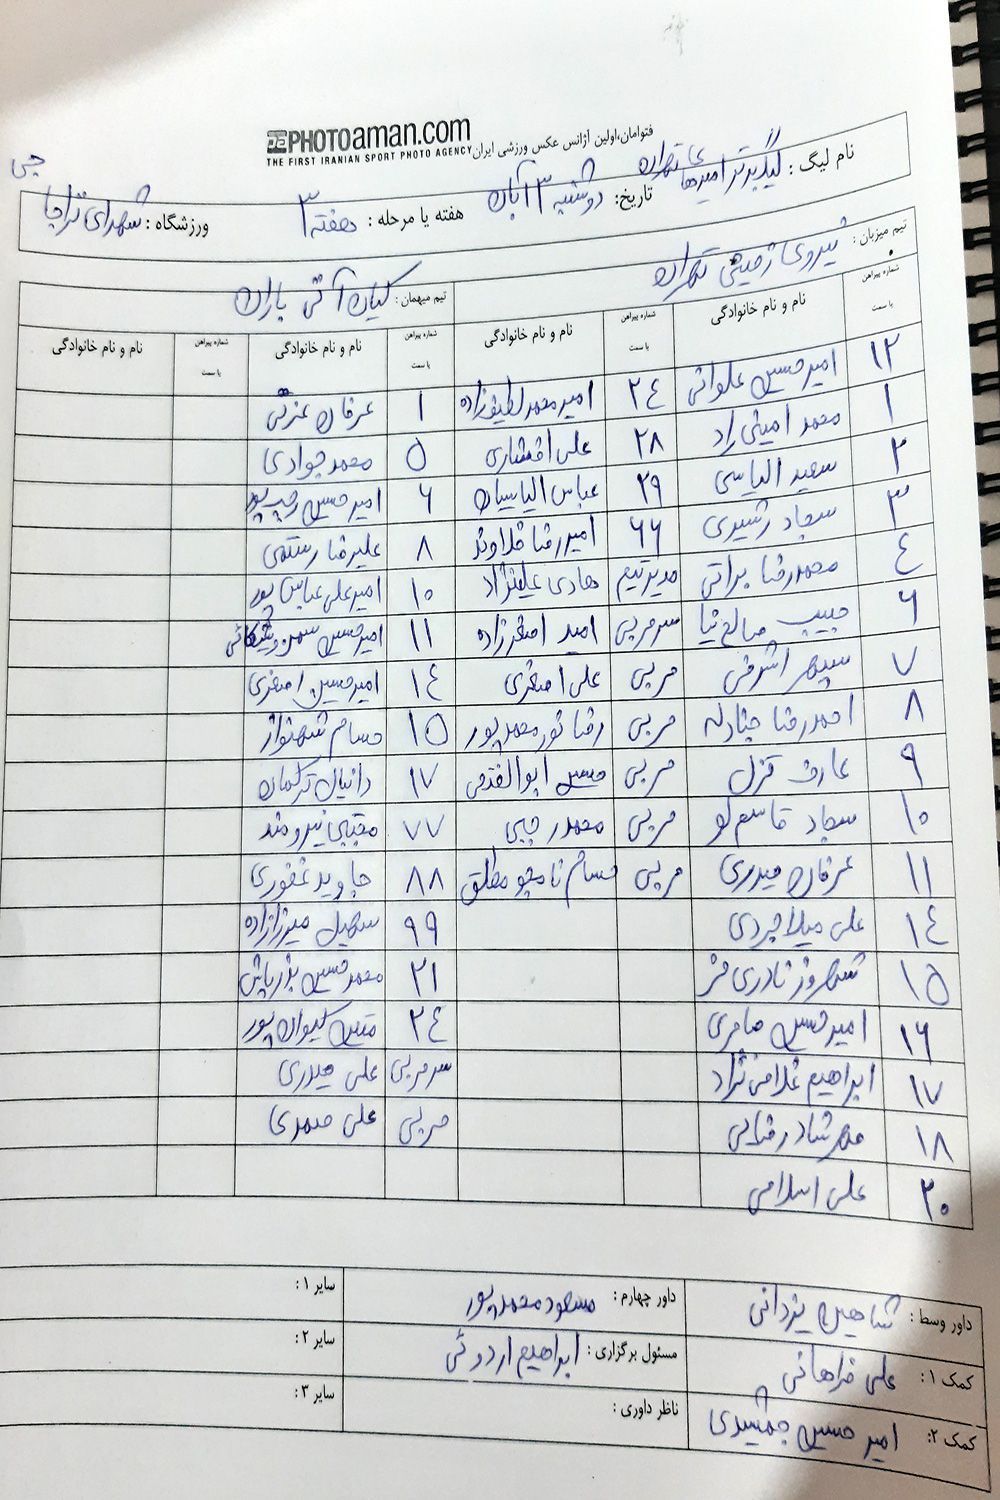 PHOTOaman.com
THE FIRST IRANIAN SPORT PHOTO AGENCY
فتوامان،اولین اژانس عکس ورزشی ایران
نام لیگ : لیگ برتر امیدهای تهران
تاریخ: دوشنبه ۳ آبان هفته یا مرحله : هفته ۳ ورزشگاه : شهدای نزاجا
جی
تیم میزبان : نیروی زمینی تهران
تیم میهمان : کیان آتی باران
شماره پیراهن یا سمت نام و نام خانوادگی شماره پیراهن یا سمت نام و نام خانوادگی شماره پیراهن یا سمت نام و نام خانوادگی شماره پیراهن یا سمت نام و نام خانوادگی
۱۲ امیرحسین علوانی ۲۴ امیرمحمد لطیف‌زاده ۱ عرفان عزتی
۱ محمد امینی راد ۲۸ علی افشاری ۵ محمد جوادی
۲ سعید الیاسی ۲۹ عباس الیاسیان ۶ امیرحسین رجب‌پور
۳ سجاد رشیدی ۶۶ امیررضا قلاوند ۸ علیرضا رستمی
۴ محمدرضا براتی مدیر تیم هادی علینژاد ۱۰ امیرعلی عباس‌پور
۶ حبیب صالح نیا سرمربی امید اصغرزاده ۱۱ امیرحسین
۷ سپهر اشرفی مربی علی اصغری ۱۴ امیرحسین اصغری
۸ احمدرضا جنادله مربی رضا نورمحمدپور ۱۵ حسام شهنواز
۹ عارف قزل مربی حسین ابوالفتحی ۱۷ دانیال ترکمان
۱۰ سجاد قاسم‌لو مربی محمد رجبی ۷۷ مجتبی نیرومند
۱۱ عرفان حیدری مربی حسام نامجو مطلق ۸۸ جاوید غفوری
۱۴ علی میلاجردی ۹۹ سهیل میرزازاده
۱۵ شهروز نادری فر ۲۱ محمدحسین بذرپاش
۱۶ امیرحسین صابری ۲۴ متین کیوان‌پور
۱۷ ابراهیم غلامی‌نژاد سرمربی علی حیدری
۱۸ مهرشاد رضایی مربی علی صمدی
۲۰ علی اسلامی
داور وسط : شاهین یزدانی داور چهارم : مسعود محمدپور سایر ۱ :
کمک ۱ : علی فراهانی مسئول برگزاری : ابراهیم اردوئی سایر ۲ :
کمک ۲: امیر حسین جمشیدی ناظر داوری : سایر ۳ :